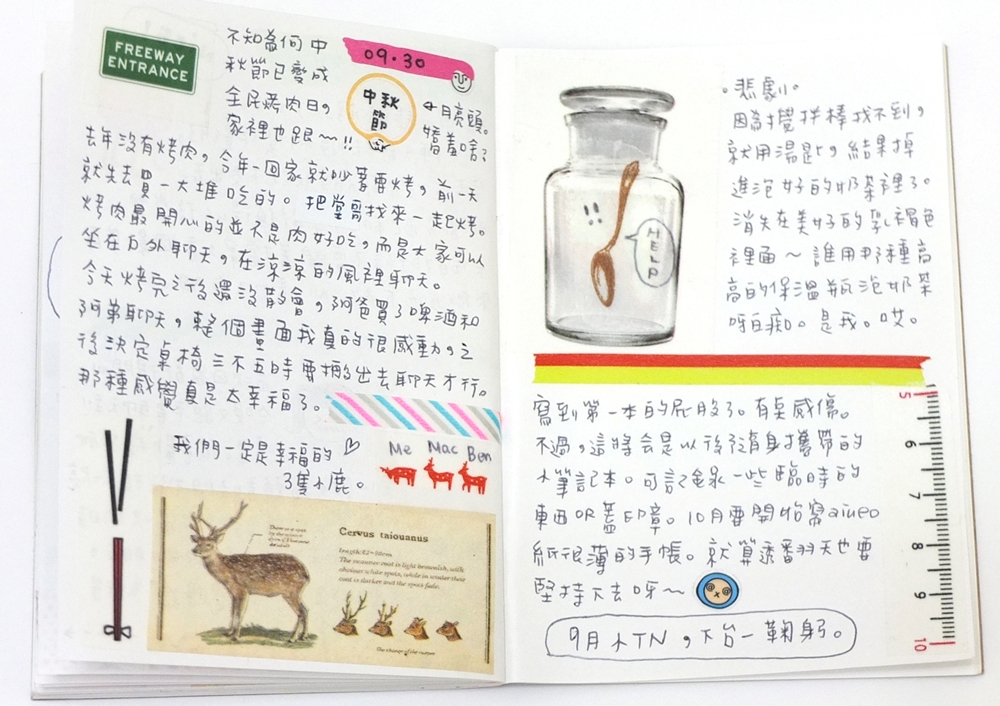 FREEWAY
ENTRANCE
不知為何中
秋節已變成
全民烤肉日，
家裡也跟～!!
09.30
中秋
節
月亮頭。
害羞啥？
去年沒有烤肉，今年一回家就吵著要烤，前一天
就先去買一大堆吃的。把堂哥找來一起烤。
烤肉最開心的並不是肉好吃，而是大家可以
坐在戶外聊天，在涼涼的風裡聊天。
今天烤完之後還沒散會，阿爸買了啤酒和
阿弟聊天，整個畫面我真的很感動。之
後決定桌椅三不五時要搬出去聊天才行。
那種感覺真是太幸福了。
我們一定是幸福的♡
3隻小鹿。
Me Mac Ben
Cervus taiouanus
length:82~98cm
The summer coat is light brownish, with
obvious white spots, while in winter their
coat is darker and the spots fade.
The change of the antlers
。悲劇。
因為攪拌棒找不到，
就用湯匙，結果掉
進泡好的奶茶裡了。
消失在美好的乳褐色
裡面～誰用那種高
高的保溫瓶泡奶茶
呀白痴。是我。哎。
HELP
寫到第一本的屁股了。有點感傷。
不過，這將會是以後隨身攜帶的
小筆記本。可記錄一些臨時的
東西OR蓋印章。10月要開始寫aiueo
紙很薄的手帳。就算透翻天也要
堅持下去呀～
9月小TN，下台一鞠躬。
5
6
7
8
9
10